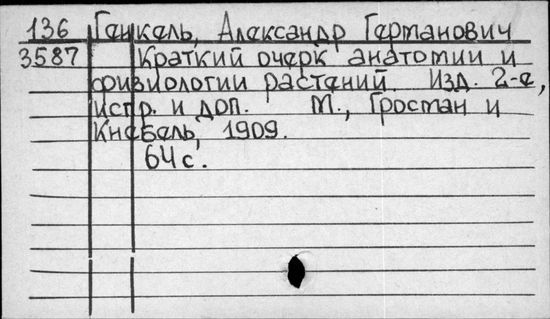 136 Генкель, Александр Германович
3587 Краткий очерк анатомии и
физиологии растений. Изд. 2-е,
испр. и доп. М., Гросман и
Кнебель, 1909.
64 с.